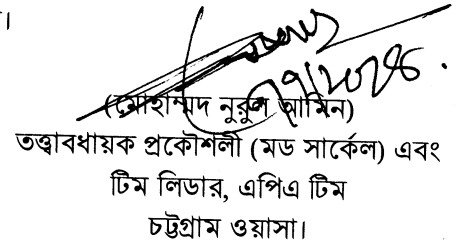 ।
(মোহাম্মদ নুরুল আমিন)
তত্ত্বাবধায়ক প্রকৌশলী (মড সার্কেল) এবং
টিম লিডার, এপিএ টিম
চট্টগ্রাম ওয়াসা।